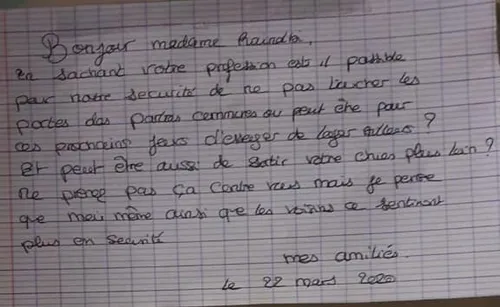 Bonjour madame
en sachant votre profession est il possible
pour notre securité de ne pas toucher les
portes des parties communes ou peut être pour
ces prochains jours d'essayer de loger ailleurs ?
et peut être aussi de sortir votre chien plus loin ?
ne prenez pas ça contre vous mais je pense
que moi même ainsi que les voisins ce sentiront
plus en securité
mes amitiés.
le 22 mars 2020